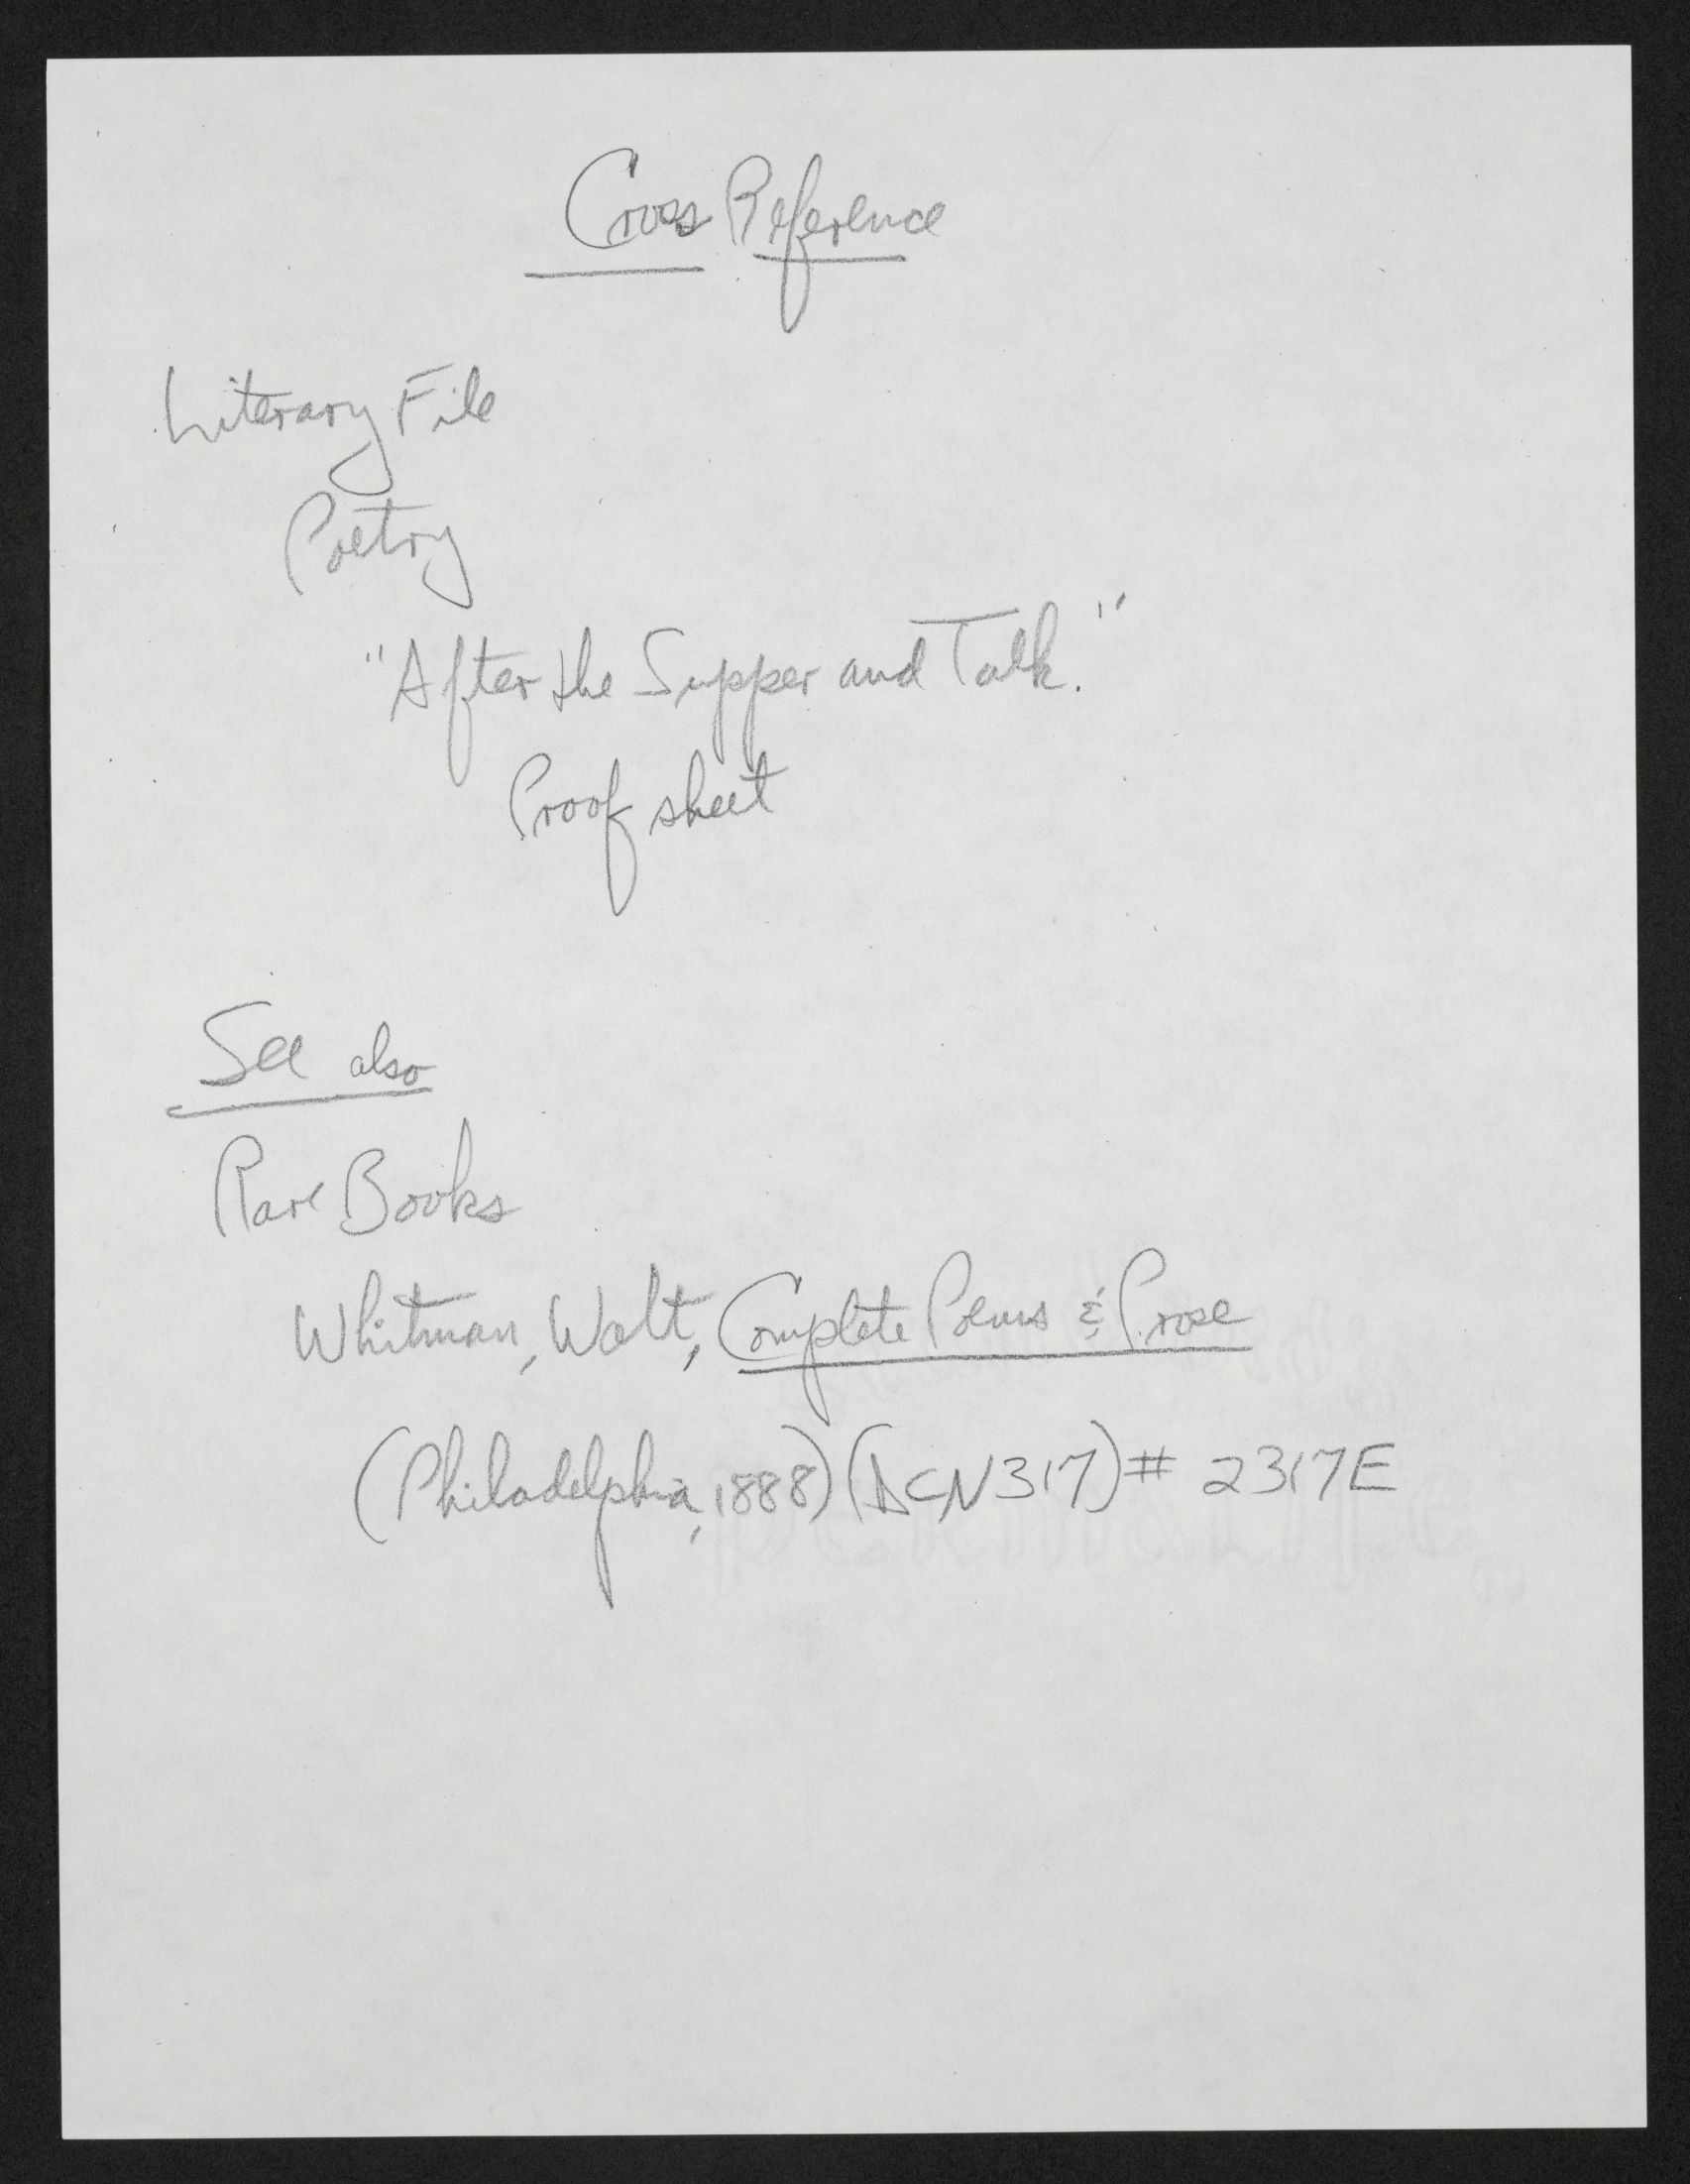 Cross Reference
Literary File
Poetry
"After the Supper and Talk."
Proof sheet
See also
Rare Books
Whitman, Walt, Complete Poems & Prose
(Philadelphia, 1888) (DCN317) # 2317E